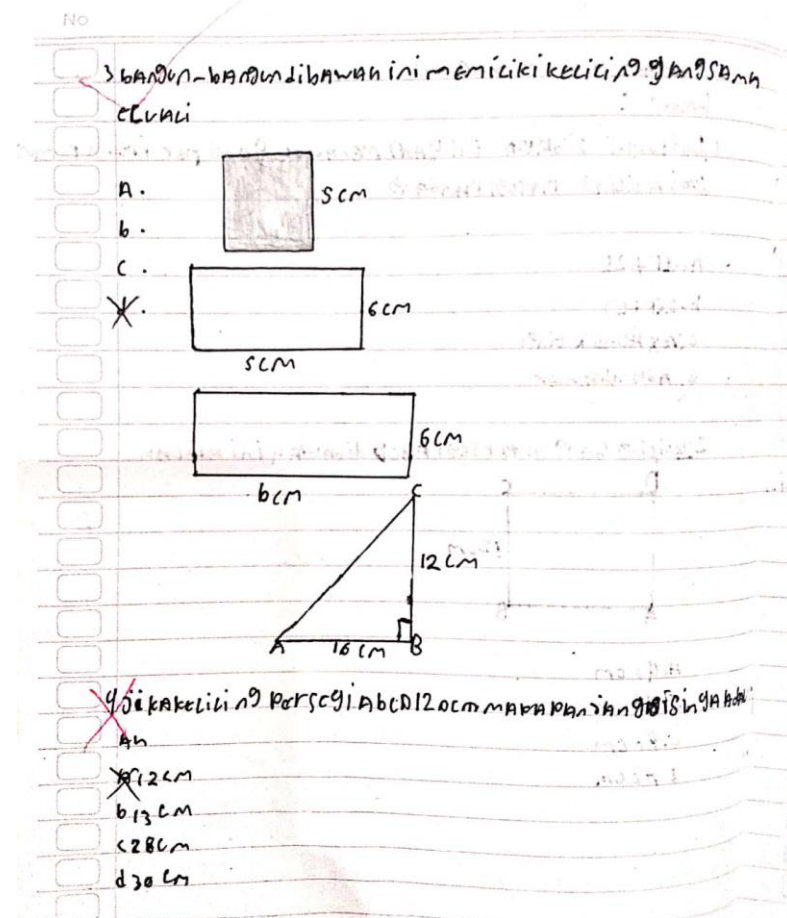 No
3 bAngun-bAngun dibAwAh ini memiliki keliling yAng sAmA
ecuAli
A.
5 cm
b.
c.
d.
6 cm
5 cm
6 cm
6 cm
C
12 cm
A 16 cm B
4 jikA keliling persegi AbcD 120 cm mAkA pAnjAng
Ah
a 12 cm
b 13 cm
c 28 cm
d 30 cm